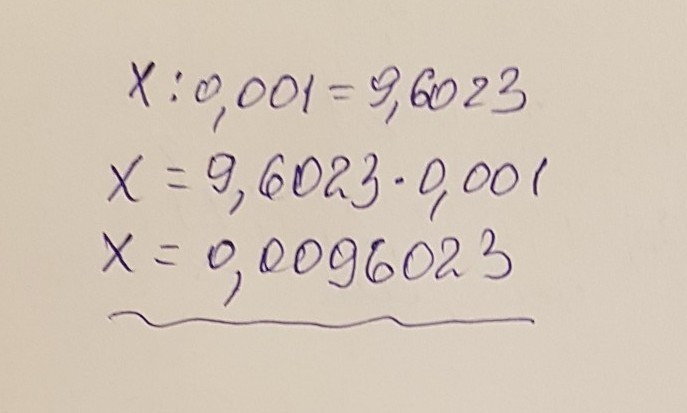 X : 0,001 = 9,6023
X = 9,6023 · 0,001
X = 0,0096023